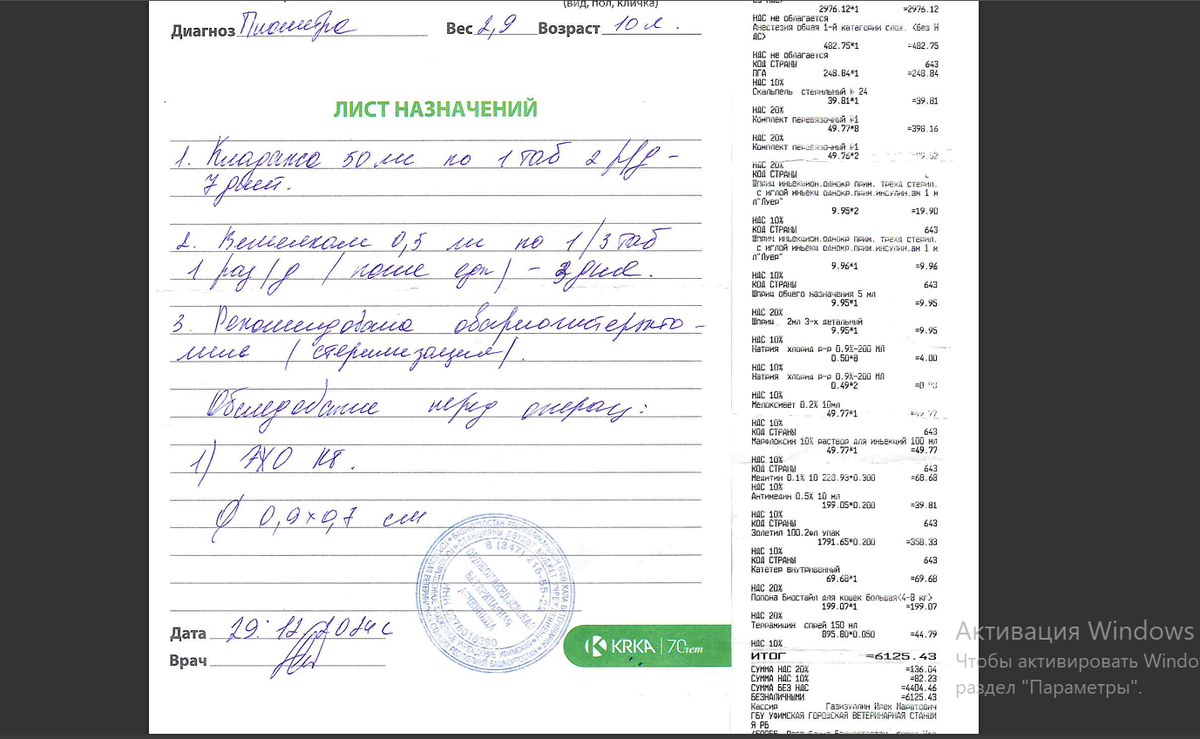 (вид, пол, кличка)
Диагноз Пиометра Вес 2,9 Возраст 10 л.
ЛИСТ НАЗНАЧЕНИЙ
1. 50 мг по 1 таб 2 р/д -
7 дней.
2. 0,5 мг по 1/3 таб
1 раз/д (после еды) - 3 дня.
3. Рекомендована овариогистерэкто-
мия (стерилизация).
Обследование перед операц:
1) ЭХО КГ.
0,9х0,7 см
8 (347) 216-55-
Дата 29.12.2024 г
Врач
KRKA 70 лет
2976.12*1 =2976.12
НДС не облагается
Анестезия общая 1-й категории слож. <Без Н
ДС>
482.75*1 =482.75
НДС не облагается
КОД СТРАНЫ 643
ПГА 248.84*1 =248.84
НДС 10%
Скальпель стерильный № 24
39.81*1 =39.81
НДС 20%
Комплект перевязочный №1
49.77*8 =398.16
НДС 20%
Комплект перевязочный №1
49.76*2
НДС 20%
КОД СТРАНЫ
Шприц инъекцион.однокр прим. трехд стерил.
с иглой инъекц однокр.прим.инсулин.ам 1 м
л"Луер"
9.95*2 =19.90
НДС 10%
КОД СТРАНЫ 643
Шприц инъекцион.однокр прим. трехд стерил.
с иглой инъекц однокр.прим.инсулин.ам 1 м
л"Луер"
9.96*1 =9.96
НДС 10%
КОД СТРАНЫ 643
Шприц общего назначения 5 мл
9.95*1 =9.95
НДС 20%
Шприц 2мл 3-х детальный
9.95*1 =9.95
НДС 10%
Натрия хлорид р-р 0.9%-200 МЛ
0.50*8 =4.00
НДС 10%
Натрия хлорид р-р 0.9%-200 МЛ
0.49*2
НДС 10%
Мелоксивет 0.2% 10мл
49.77*1 =49.77
НДС 10%
КОД СТРАНЫ 643
Марфлоксин 10% раствор для инъекций 100 мл
49.77*1 =49.77
НДС 10%
КОД СТРАНЫ 643
Медитин 0.1% 10 228.93*0.300 =68.68
НДС 10%
Антимедин 0.5% 10 мл
199.05*0.200 =39.81
НДС 10%
КОД СТРАНЫ 643
Золетил 100.2фл упак
1791.65*0.200 =358.33
НДС 10%
КОД СТРАНЫ 643
Катетер внутривенный
69.68*1 =69.68
НДС 20%
Попона Биостайл для кошек большая<4-8 кг>
199.07*1 =199.07
НДС 20%
Террамицин спрей 150 мл
895.80*0.050 =44.79
НДС 10%
ИТОГ =6125.43
СУММА НДС 20% =136.04
СУММА НДС 10% =82.23
СУММА БЕЗ НДС =4404.46
БЕЗНАЛИЧНЫМИ =6125.43
Кассир Газизуллин Ирек Маратович
ГБУ УФИМСКАЯ ГОРОДСКАЯ ВЕТЕРИНАРНАЯ СТАНЦИ
Я РБ
Активация Windows
Чтобы активировать Windo
раздел "Параметры".